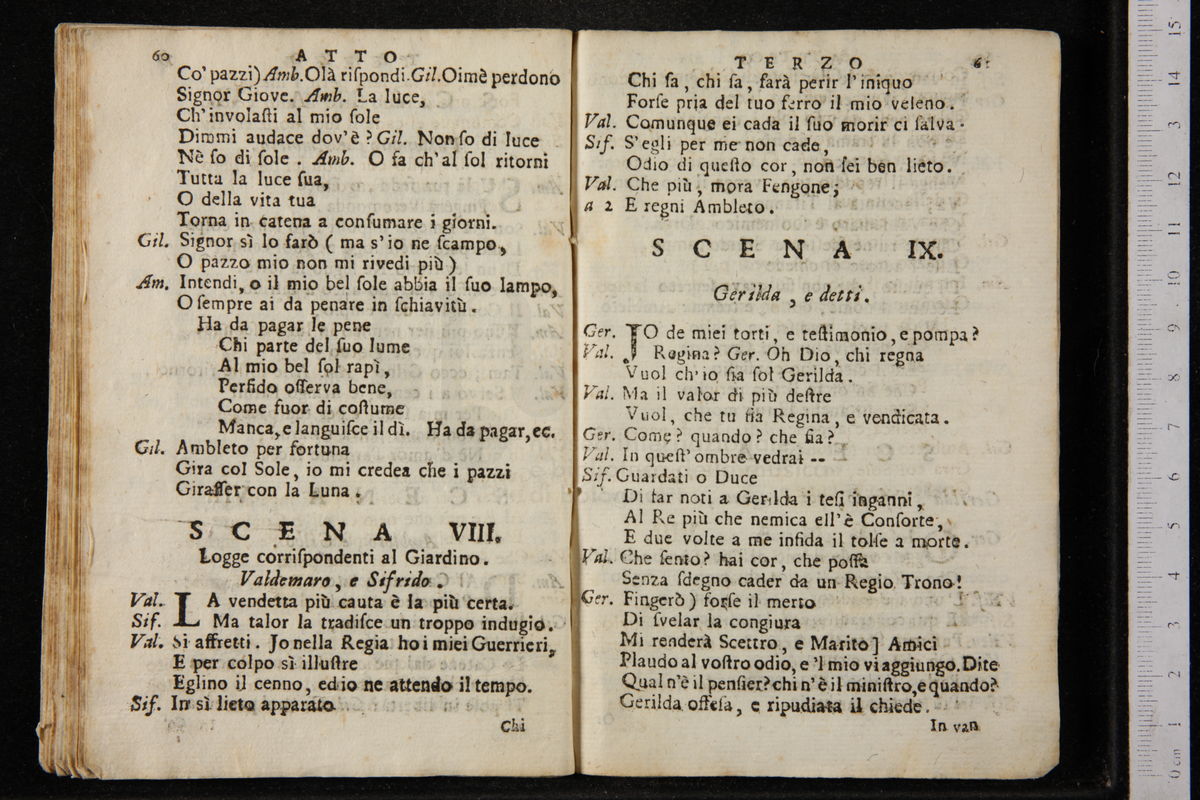 60 ATTO
Co' pazzi) Amb. Olà riſpondi. Gil. Oimè perdono
Signor Giove. Amb. La luce,
Ch'involaſti al mio ſole
Dimmi audace dov'è? Gil. Non ſo di luce
Nè ſo di ſole. Amb. O fa ch'al ſol ritorni
Tutta la luce ſua,
O della vita tua
Torna in catena a conſumare i giorni.
Gil. Signor sì lo farò (ma s'io ne ſcampo,
O pazzo mio non mi rivedi più)
Am. Intendi, o il mio bel ſole abbia il ſuo lampo,
O ſempre ai da penare in ſchiavitù.
Ha da pagar le pene
Chi parte del ſuo lume
Al mio bel ſol rapì,
Perfido oſſerva bene,
Come fuor di coſtume
Manca, e languiſce il dì. Ha da pagar, ec.
Gil. Ambleto per fortuna
Gira col Sole, io mi credea che i pazzi
Giraſſer con la Luna.
SCENA VIII.
Logge corriſpondenti al Giardino.
Valdemaro, e Sifrido.
Val. LA vendetta più cauta è la più certa.
Sif. Ma talor la tradiſce un troppo indugio.
Val. Si affretti. Jo nella Regia ho i miei Guerrieri,
E per colpo sì illuſtre
Eglino il cenno, ed io ne attendo il tempo.
Sif. In sì lieto apparato
Chi
TERZO 61
Chi ſa, chi ſa, farà perir l'iniquo
Forſe pria del tuo ferro il mio veleno.
Val. Comunque ei cada il ſuo morir ci ſalva.
Sif. S'egli per me non cade,
Odio di queſto cor, non ſei ben lieto.
Val. Che più, mora Fengone;
a 2 E regni Ambleto.
SCENA IX.
Gerilda, e detti.
Ger. JO de miei torti, e teſtimonio, e pompa?
Val. Regina? Ger. Oh Dio, chi regna
Vuol ch'io ſia ſol Gerilda.
Val. Ma il valor di più deſtre
Vuol, che tu ſia Regina, e vendicata.
Ger. Come? quando? che ſia?
Val. In queſt'ombre vedrai --
Sif. Guardati o Duce
Di far noti a Gerilda i teſi inganni,
Al Re più che nemica ell'è Conſorte,
E due volte a me infida il tolſe a morte.
Val. Che ſento? hai cor, che poſſa
Senza ſdegno cader da un Regio Trono!
Ger. Fingerò) forſe il merto
Di ſvelar la congiura
Mi renderà Scettro, e Marito] Amici
Plaudo al voſtro odio, e 'l mio vi aggiungo. Dite
Qual n'è il penſier? chi n'è il miniſtro, e quando?
Gerilda offeſa, e ripudiata il chiede.
In van
0 cm 1 2 3 4 5 6 7 8 9 10 11 12 3 14 15